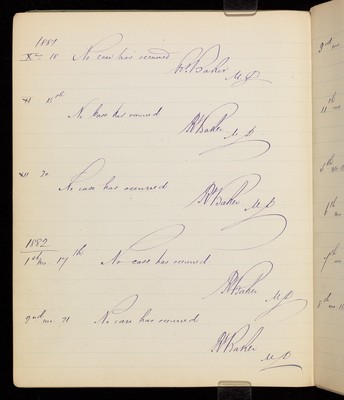 1881
Xmo 18 No case has occurred
Rt. Baker M.D.
XI 15th
No Case has occurred
Rt Baker M.D.
XII 20
No case has occurred
Rt Baker M.D.
1882
1st mo 17th No case has occurred
Rt Baker M.D.
2nd mo 21 No case has occurred
Rt Baker M.D.
3rd mo
11th
5th mo
6th mo
7th mo
8th mo